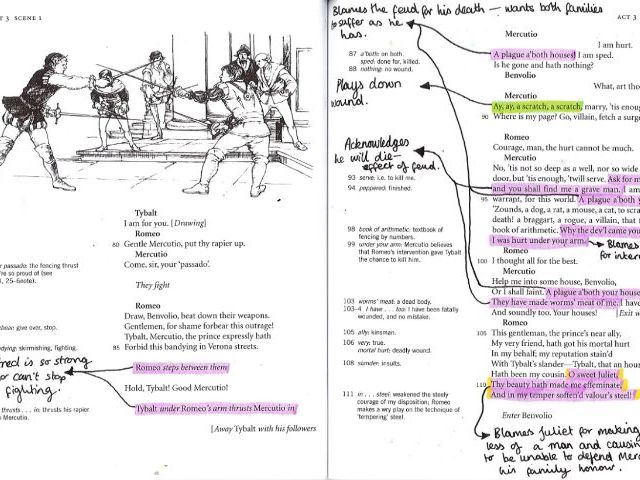 T 3 SCENE 1
Tybalt
I am for you. [Drawing]
Romeo
80 Gentle Mercutio, put thy rapier up.
Mercutio
Come, sir, your 'passado'.
They fight
Romeo
Draw, Benvolio, beat down their weapons.
Gentlemen, for shame forbear this outrage!
Tybalt, Mercutio, the prince expressly hath
85 Forbid this bandying in Verona streets.
Romeo steps between them
Hold, Tybalt! Good Mercutio!
Tybalt under Romeo's arm thrusts Mercutio in
[Away Tybalt with his followers
passado: the fencing thrust
're so proud of (see
4, 25–6note).
bear: give over, stop.
dying: skirmishing, fighting.
thrusts . . . in: thrusts his rapier
Mercutio.
is so strong
or can't stop
fighting.
Blames the feud for his death – wants both families
to suffer as he
has.
ACT 3
87 a'both: on both.
sped: done for, killed.
88 nothing: no wound.
Plays down
wound.
Acknowledges
he will die –
effect of feud.
93 serve: i.e. to kill me.
94 peppered: finished.
98 book of arithmetic: textbook of
fencing by numbers.
99 under your arm: Mercutio believes
that Romeo's intervention gave Tybalt
the chance to kill him.
103 worms' meat: a dead body.
103–4 I have . . . too: I have been fatally
wounded, and no mistake.
105 ally: kinsman.
106 very: true.
mortal hurt: deadly wound.
108 slander: insults.
111 in . . . steel: weakened the steely
courage of my disposition; Romeo
makes a wry play on the technique of
'tempering' steel.
Mercutio
I am hurt.
A plague a'both houses! I am sped.
Is he gone and hath nothing?
Benvolio
What, art tho
Mercutio
Ay, ay, a scratch, a scratch, marry, 'tis enou
90 Where is my page? Go, villain, fetch a surge
Romeo
Courage, man, the hurt cannot be much.
Mercutio
No, 'tis not so deep as a well, nor so wide
door, but 'tis enough, 'twill serve. Ask for m
and you shall find me a grave man. I am
95 warrant, for this world. A plague a'both y
'Zounds, a dog, a rat, a mouse, a cat, to scra
death! a braggart, a rogue, a villain, that
book of arithmetic. Why the dev'l came you
I was hurt under your arm.
Blames
for inter
Romeo
100 I thought all for the best.
Mercutio
Help me into some house, Benvolio,
Or I shall faint. A plague a'both your house
They have made worms' meat of me. I have
And soundly too. Your houses! [Exit w
Romeo
105 This gentleman, the prince's near ally,
My very friend, hath got his mortal hurt
In my behalf; my reputation stain'd
With Tybalt's slander—Tybalt, that an hou
Hath been my cousin. O sweet Juliet,
110 Thy beauty hath made me effeminate,
And in my temper soften'd valour's steel!
Enter Benvolio
Blames Juliet for making
less of a man and causing
to be unable to defend Merc
his family honour.